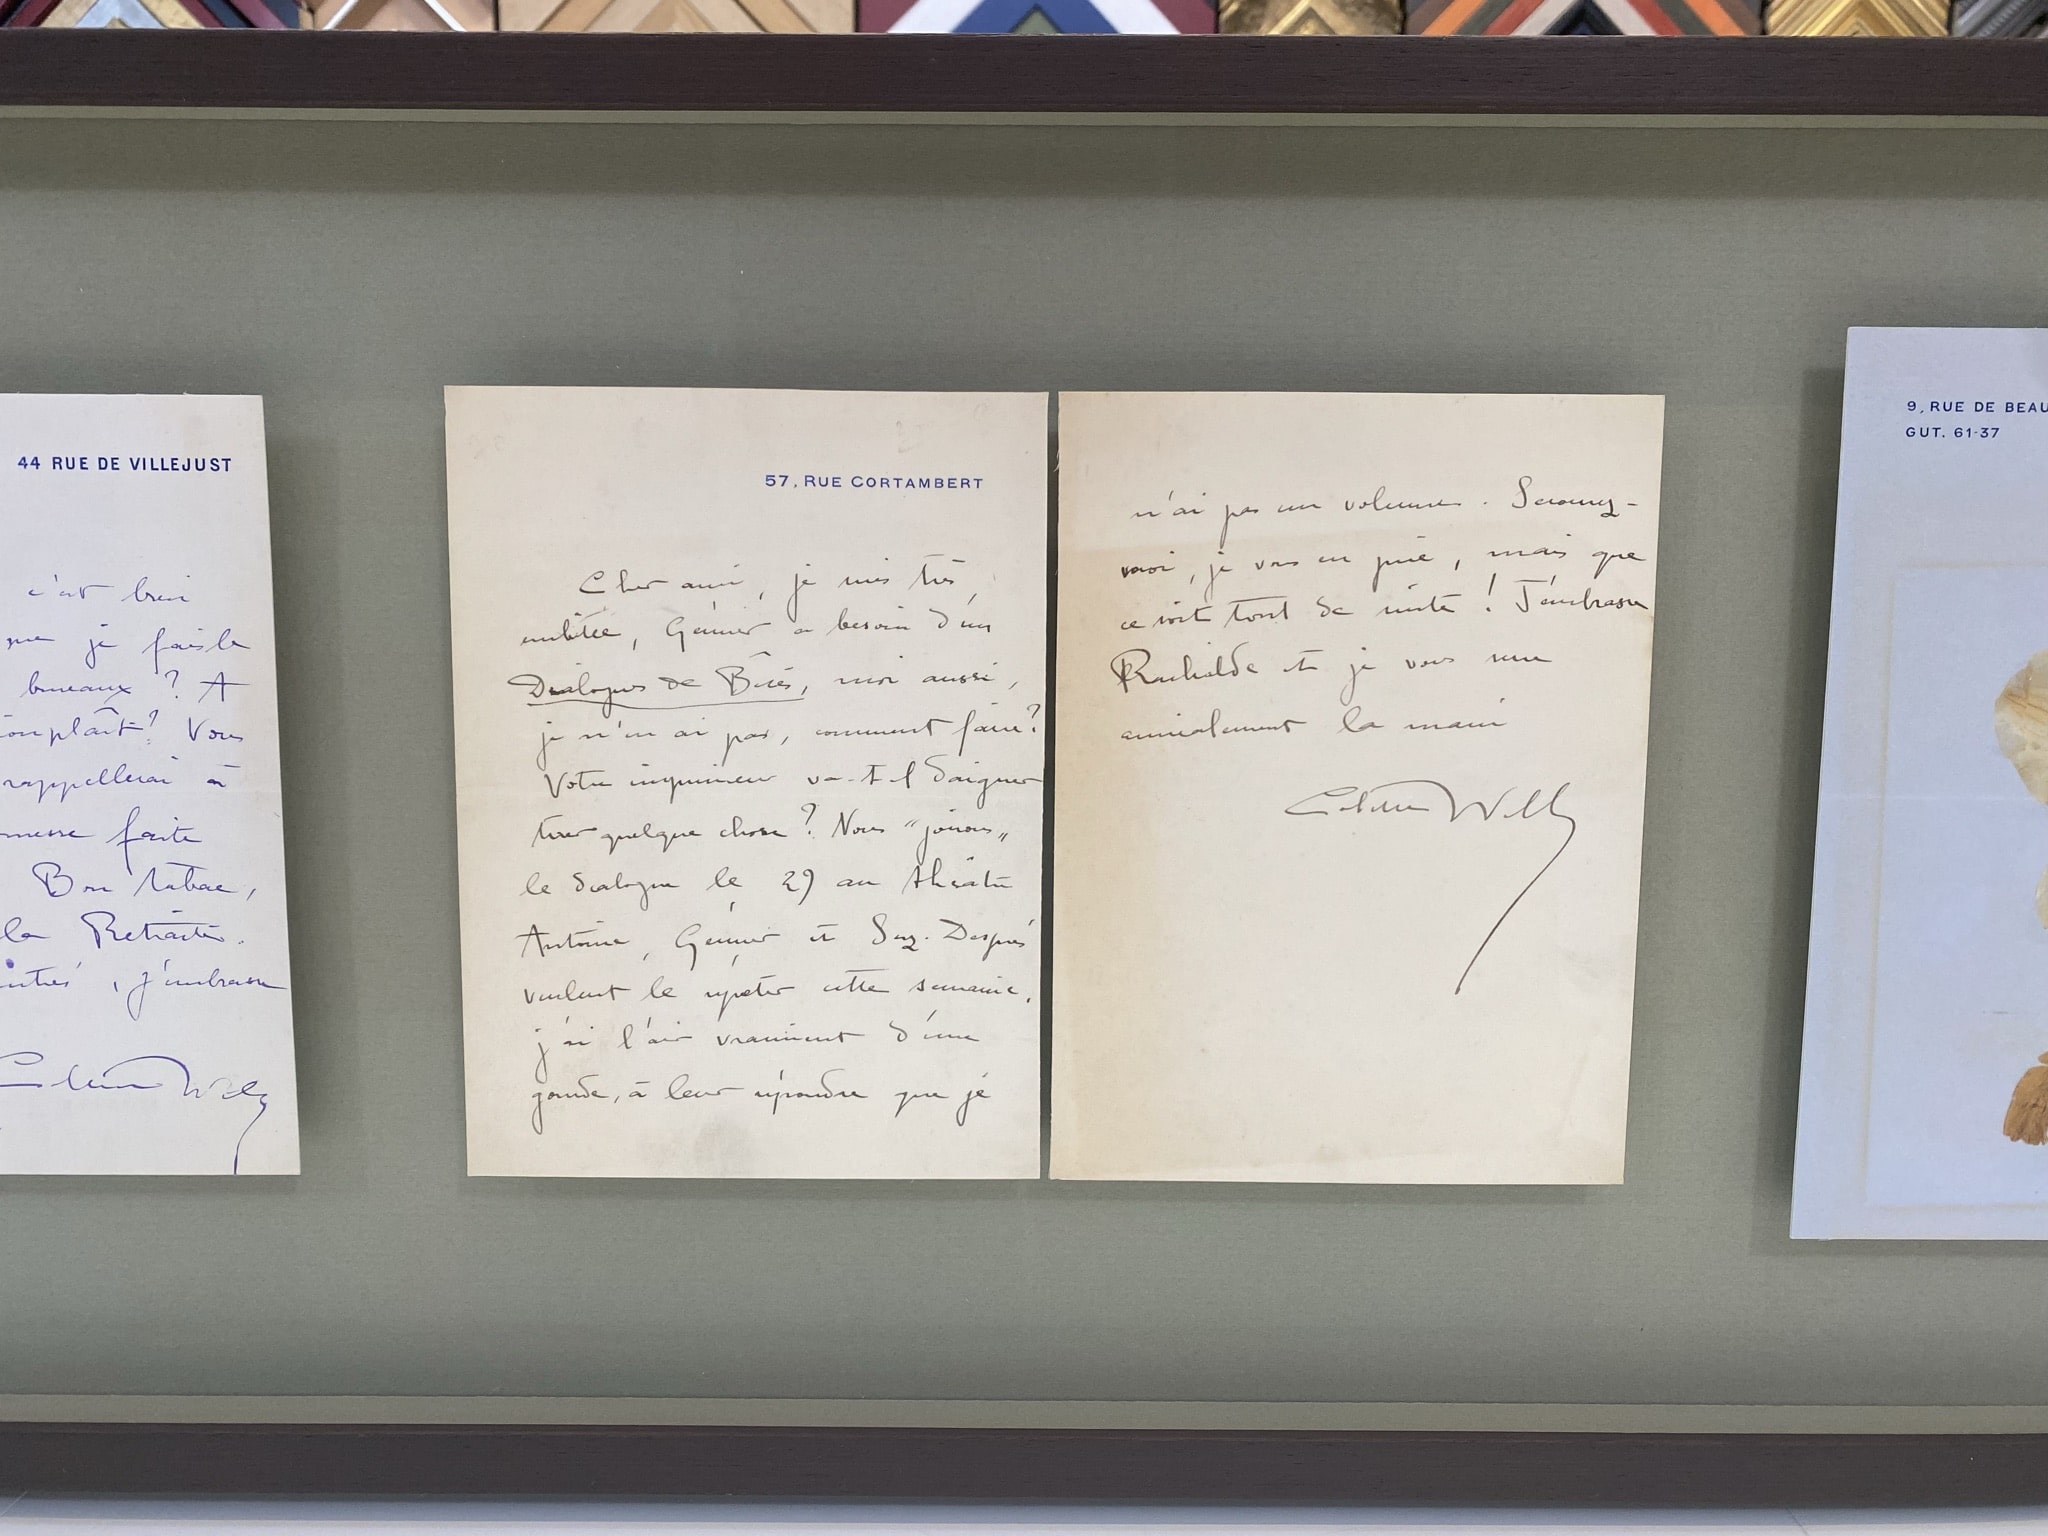 44 RUE DE VILLEJUST
c'est bien
que je fais le
bureaux ? A
plaît ? Vous
rappellerai à
faite
Bon tabac,
la Retraite.
, j'embrasse
Colette Willy
57, RUE CORTAMBERT
Cher ami, je suis très
embêtée, Gémier a besoin d'un
Dialogues de Bêtes, moi aussi,
je n'en ai pas, comment faire ?
Votre imprimeur va-t-il daigner
tirer quelque chose ? Nous "jouons"
le dialogue le 29 au théâtre
Antoine, Gémier et Suz. Després
veulent le répéter cette semaine,
j'ai l'air vraiment d'une
gourde, à leur répondre que je
n'ai pas un volume. Secourez-
moi, je vous en prie, mais que
ce soit tout de suite ! J'embrasse
Rachilde et je vous serre
amicalement la main
Colette Willy
9, RUE DE BEAU
GUT. 61-37